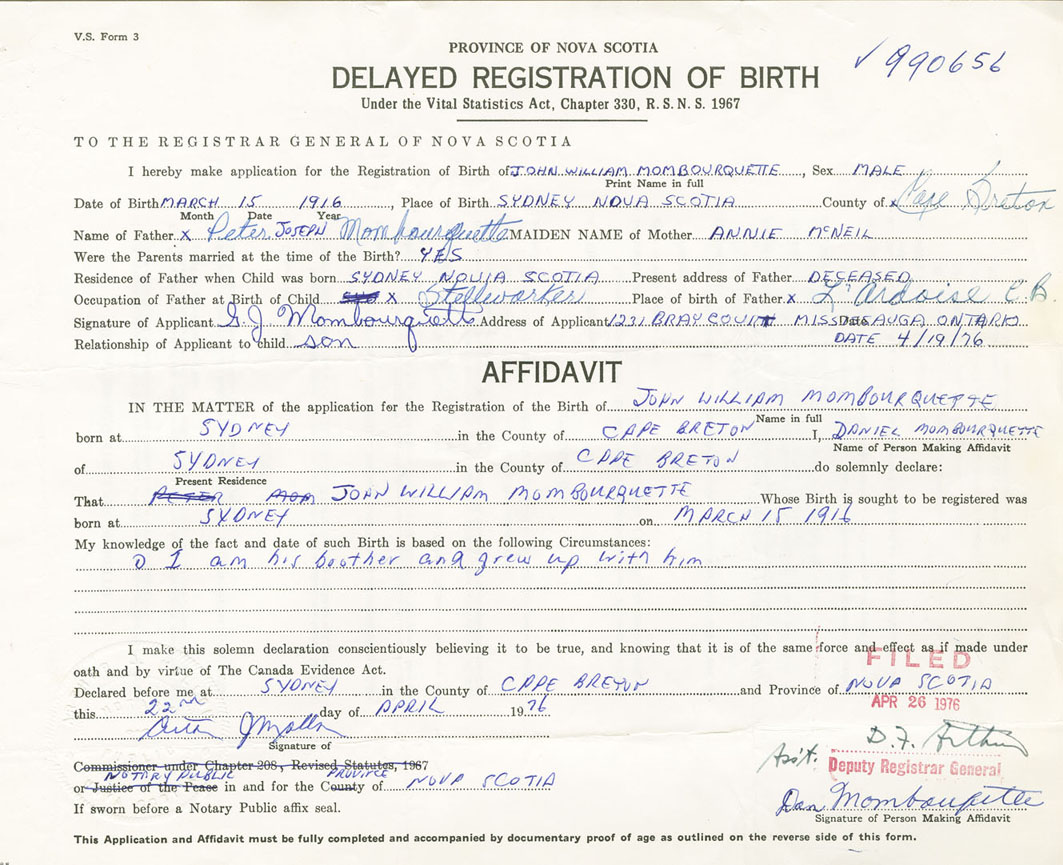 V.S. Form 3
PROVINCE OF NOVA SCOTIA
✓990656
DELAYED REGISTRATION OF BIRTH
Under the Vital Statistics Act, Chapter 330, R.S.N.S. 1967
TO THE REGISTRAR GENERAL OF NOVA SCOTIA
I hereby make application for the Registration of Birth of JOHN WILLIAM MOMBOURQUETTE, Sex MALE
Print Name in full
Date of Birth MARCH 15 1916, Place of Birth SYDNEY NOVA SCOTIA County of x Cape Breton
Month Date Year
Name of Father x Peter JOSEPH Mombourquette MAIDEN NAME of Mother ANNIE McNEIL
Were the Parents married at the time of the Birth? YES
Residence of Father when Child was born SYDNEY NOVIA SCOTIA Present address of Father DECEASED
Occupation of Father at Birth of Child x Stellworker Place of birth of Father x L'Ardoise C.B.
Signature of Applicant G J Mombourquette Address of Applicant 1231 BRAY COURT MISSISSAUGA ONTARIO Date
Relationship of Applicant to child son DATE 4/19/76
AFFIDAVIT
IN THE MATTER of the application for the Registration of the Birth of JOHN WILLIAM MOMBOURQUETTE
Name in full
born at SYDNEY in the County of CAPE BRETON I, DANIEL MOMBOURQUETTE
Name of Person Making Affidavit
of SYDNEY in the County of CAPE BRETON do solemnly declare:
Present Residence
That PETER MOM JOHN WILLIAM MOMBOURQUETTE Whose Birth is sought to be registered was
born at SYDNEY on MARCH 15 1916
My knowledge of the fact and date of such Birth is based on the following Circumstances:
I am his boother and grew up with him
I make this solemn declaration conscientiously believing it to be true, and knowing that it is of the same force and effect as if made under
oath and by virtue of The Canada Evidence Act.
FILED
Declared before me at SYDNEY in the County of CAPE BRETON and Province of NOVA SCOTIA
APR 26 1976
this 22nd day of APRIL 1976
Signature of
D.F.
Commissioner under Chapter 208, Revised Statutes, 1967
Ass't. Deputy Registrar General
NOTARY PUBLIC PROVINCE
or Justice of the Peace in and for the County of NOVA SCOTIA
Dan Mombourquette
If sworn before a Notary Public affix seal.
Signature of Person Making Affidavit
This Application and Affidavit must be fully completed and accompanied by documentary proof of age as outlined on the reverse side of this form.